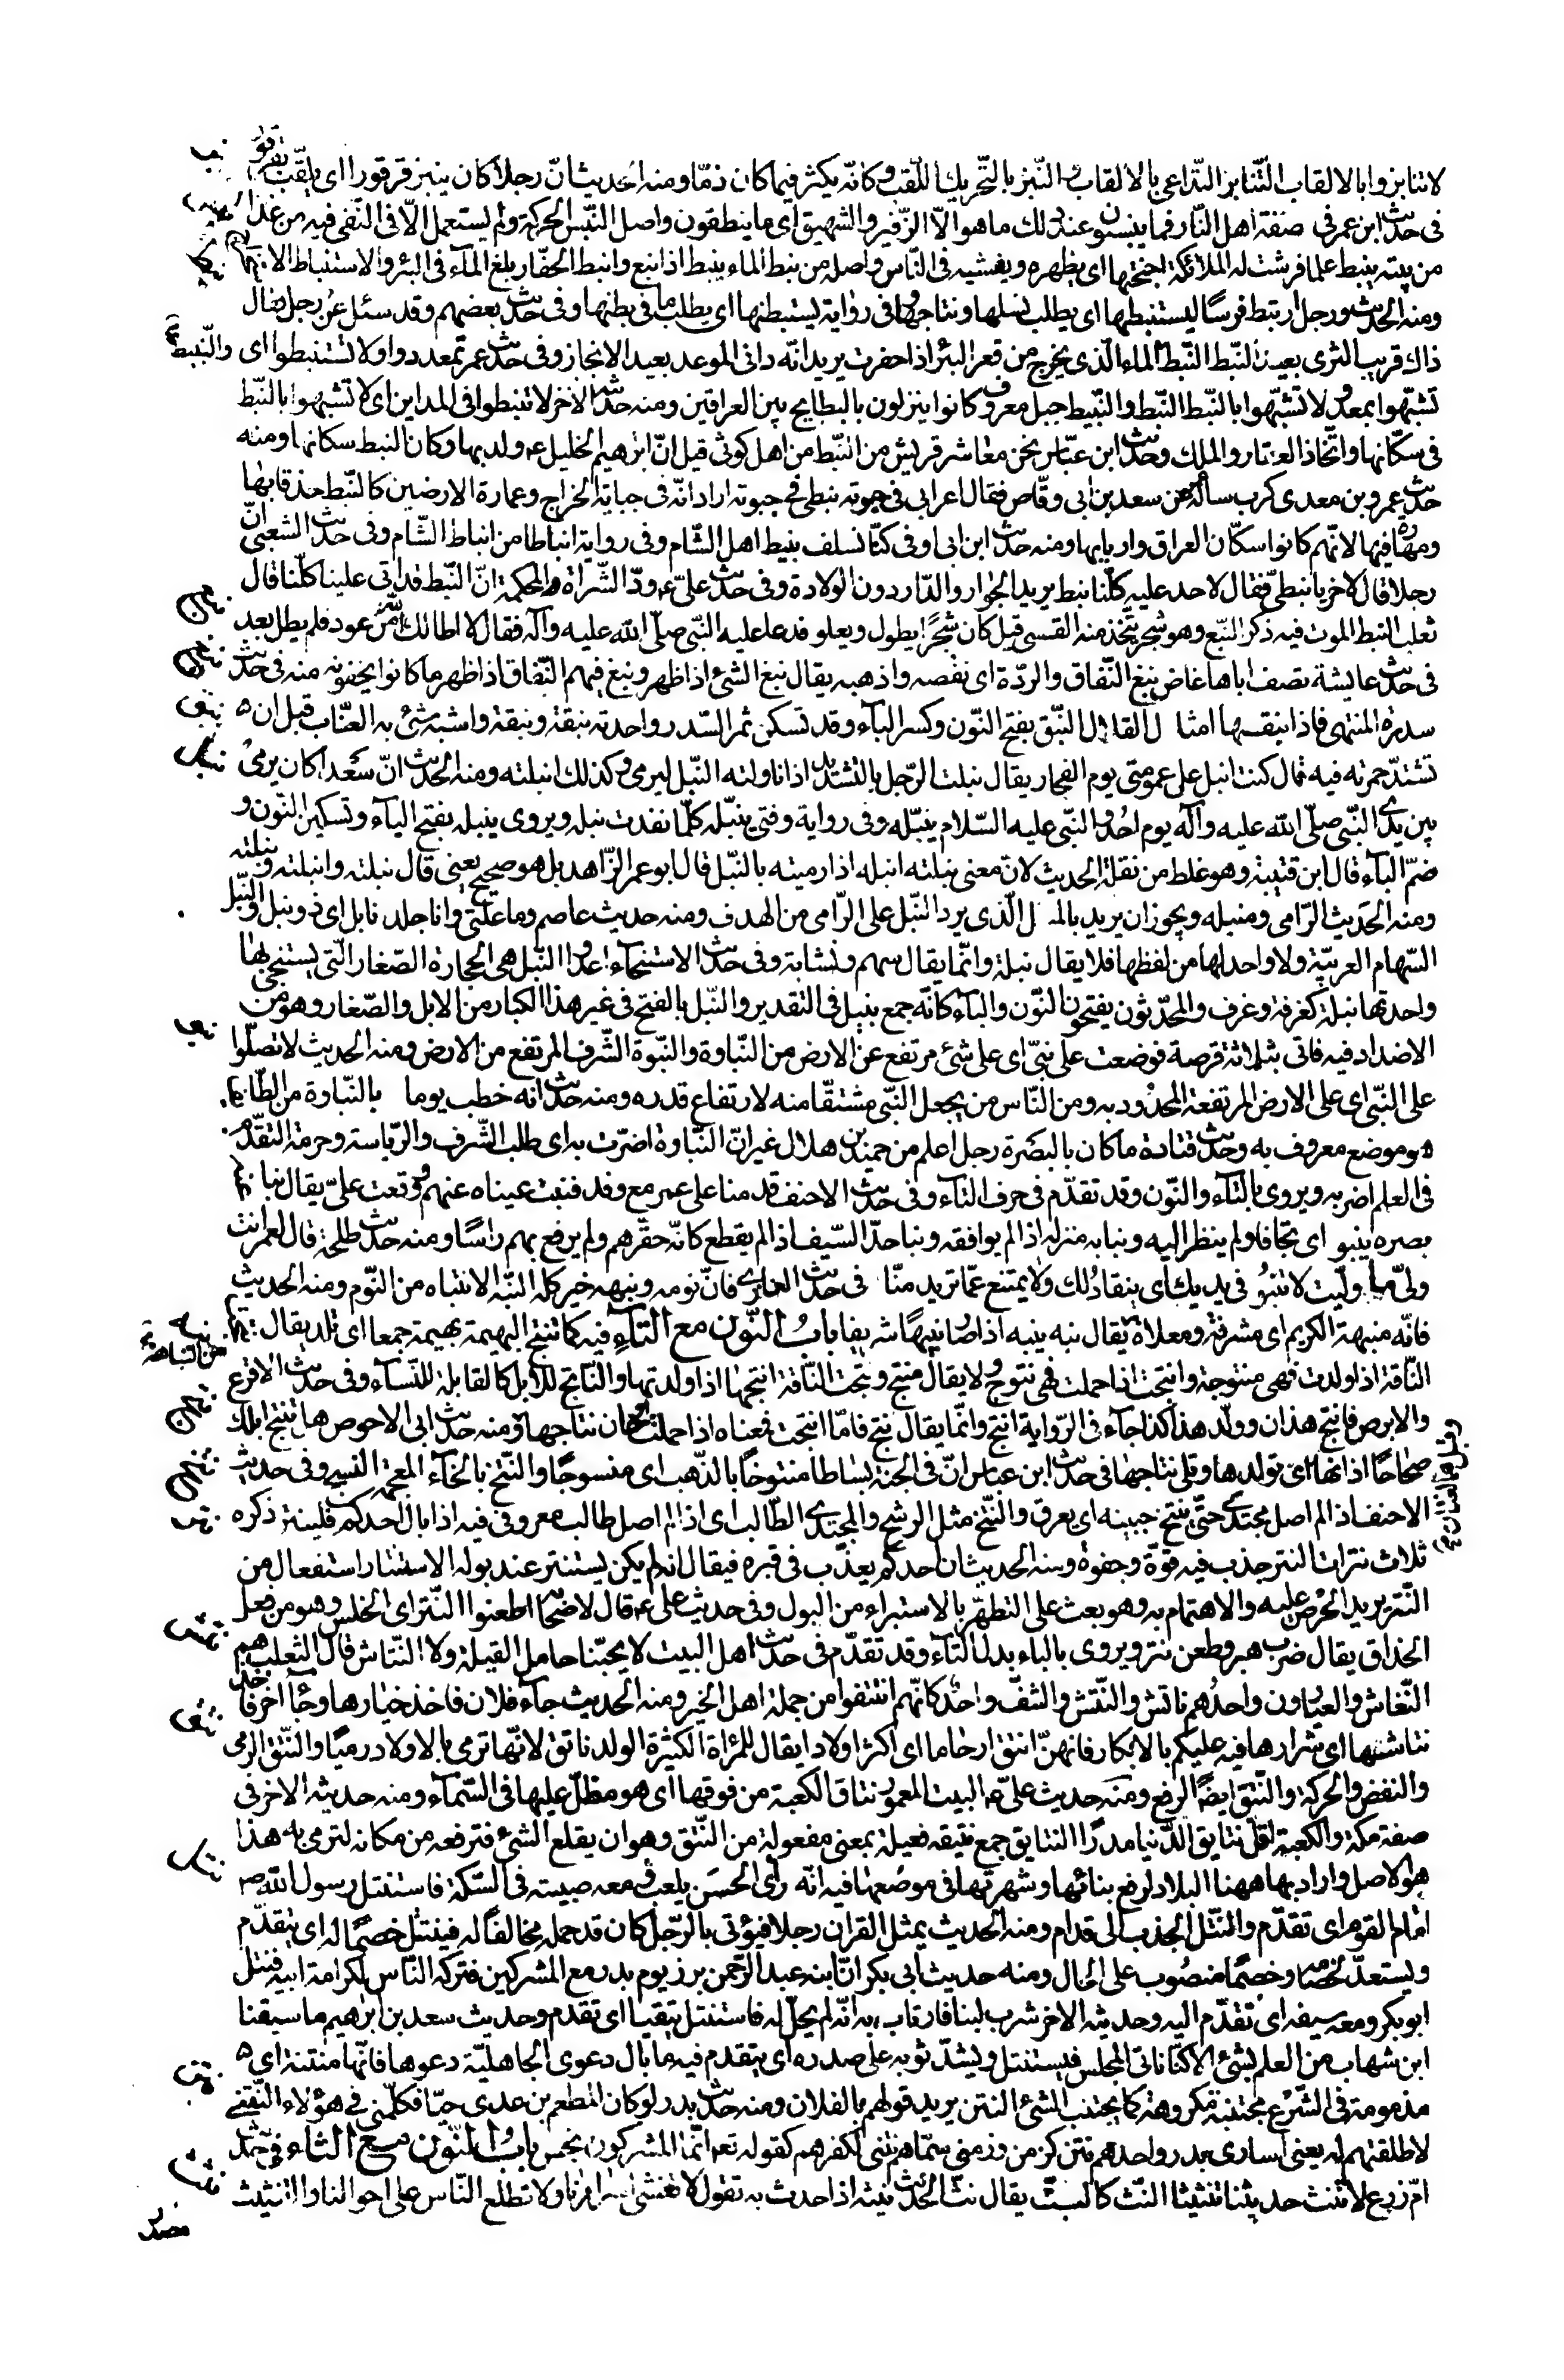 لا تنابزوا بالالقاب التّنابز التداعى بالالقاب والنّبز بالتّحريك اللّقب وكانّه يكثر فيما كان ذمّا ومنه الحديث انّ رجلا كان ينبز قرقورا اى يلقّب بقرقور
فى حديث ابن عمر فى صفة اهل النّار فما ينبسون عند ذلك ما هو الّا الزّفير والشهيق اى ما ينطقون واصل النّبس الحركة ولم يستعمل الّا فى النّفى فيه من غدا
من بيته ينبط علما فرشت له الملائكة اجنحتها اى يظهره ويفشيه فى النّاس واصله من نبط الماء ينبط اذا نبع وانبط الحفّار بلغ الماء فى البئر والاستنباط الا
ومنه الحديث ورجل ارتبط فرسا ليستنبطها اى يطلب نسلها ونتاجها وفى رواية يستبطنها اى يطلب ما فى بطنها وفى حديث بعضهم وقد سئل عن رجل فقال
ذاك قريب الثرى بعيد النّبط النّبط الماء الّذى يخرج من قعر البئر اذا حفرت يريد انّه دانى الموعد بعيد الانجاز وفى حديث عمر تمعددوا ولا تستنبطوا اى
تشبّهوا بمعد ولا تشبّهوا بالنّبط النّبط والنّبيط جيل معروف كانوا ينزلون بالبطايح بين العراقين ومنه حديثه الاخر لا تنبطوا فى المداين اى لا تشبهوا بالنّبط
فى سكّانها واتّخاذ العقار والملك وحديث ابن عبّاس نحن معاشر قريش من النّبط من اهل كوثى قيل انّ ابرهيم الخليل ع ولد بها وكان النبط سكانها ومنه
حديث عمرو بن معدى كرب سأله عمر عن سعد بن ابى وقّاص فقال اعرابى فى حبوته نبطى فى جبوته اراد انّه فى جباية الخراج وعمارة الارضين كالنّبط حذقا بها
ومهارة فيها لانّهم كانوا سكّان العراق واربابها ومنه حديث ابن ابى اوفى كنّا نسلف نبيط اهل الشّام وفى رواية انباطا من انباط الشّام وفى حديث الشعبى انّ
رجلا قال لاخر يا نبطىّ فقال لا حد عليه كلّنا نبط يريد الجوار والدّار دون الولادة وفى حديث علىّ ع ودّ الشّراة المحكمة انّ النّبط قد اتى علينا كلّنا قال
ثعلب النبط الموت فيه ذكر النّبع وهو شجر يتّخذ منه القسى قيل كان شجرا يطول ويعلو فدعا عليه النّبى صلّى الله عليه وآله فقال لا اطالك الله من عود فلم يطل بعد
فى حديث عايشة تصف اباها غاض نبغ النّفاق والردّة اى نقصه واذهبه يقال نبغ الشئ اذا ظهر ونبغ فيهم النّفاق اذا ظهر ما كانوا يخفونه منه فى حديث
سدرة المنتهى فاذا نبقها امثال القلال النّبق بفتح النّون وكسر الباء وقد تسكن ثمر السّدر واحدته نبقة ونبقة واشبه شئ به العنّاب قبل ان
تشتدّ حمرته فيه قال كنت انبل على عمومتى يوم الفجار يقال نبلت الرّجل بالتشديد اذا ناولته النّبل ليرمى وكذلك انبلته ومنه الحديث انّ سعدا كان يرمى
بين يدى النّبى صلّى الله عليه وآله يوم احد والنّبى عليه السّلام ينبّله وفى رواية وفتى ينبّله كلّما نفدت نبله ويروى ينبله بفتح الياء وتسكين النّون و
ضمّ الباء قال ابن قتيبة وهو غلط من نقلة الحديث لانّ معنى نبلته انبله اذا رميته بالنّبل قال ابو عمر الزّاهد بل هو صحيح يعنى قال نبلته وانبلته ونبّلته
ومنه الحديث الرّامى ومنبله ويجوز ان يريد بالمنبل الّذى يرد النّبل على الرّامى من الهدف ومنه حديث عاصم وما علّتى وانا جلد نابل اى ذو نبل والنّبل
السّهام العربيّة ولا واحد لها من لفظها فلا يقال نبلة وانّما يقال سهم ونشابة وفى حديث الاستنجاء اعدوا النّبل هى الحجارة الصّغار الّتى يستنجى بها
واحدتها نبلة كغرفة وغرف والمحدّثون يفتحون النّون والباء كانّه جمع نبيل فى التقدير والنّبل بالفتح فى غير هذا الكبار من الابل والصّغار وهو من
الاضداد فيه فاتى بثلاثة قرصة فوضعت على نبىّ اى على شئ مرتفع عن الارض من النّباوة والنّبوة الشّرف المرتفع من الارض ومنه الحديث لا تصلّوا
على النّبى اى على الارض المرتفعة المحدودبه ومن النّاس من يجعل النّبى مشتقّا منه لارتفاع قدره ومنه حديث انه خطب يوما بالنّباوة من الطّائف
هو موضع معروف به وحديث قتادة ما كان بالبصرة رجل اعلم من حميد بن هلال غير انّ النّباوة اضرّت به اى طلب الشّرف والرّياسة وحرمة التقدّم
فى العلم اضر به ويروى بالتاء والنّون وقد تقدّم فى حرف التاء وفى حديث الاحنف قدمنا على عمر مع وفد فنبت عيناه عنهم ووقعت علىّ يقال نبا
بصره ينبو اى تجافا ولم ينظر اليه ونبا به منزله اذا لم يوافقه ونبا حدّ السّيف اذا لم يقطع كانّه حقّرهم ولم يرفع بهم راسا ومنه حديث طلحة قال لعمر انت
ولىّ ما وليت لا تنبو فى يديك اى ينقاد لك ولا يمتنع عمّا تريد منّا فى حديث الغازى فانّ نومه ونبهه خير كلّه النّبه الانتباه من النّوم ومنه الحديث
فانّه منبهة الكريم اى مشرفة ومعلاة يقال نبه ينبه اذا صار نبيها شريفا باب النّون مع التاء فيه كما تنتج البهيمة بهيمة جمعا اى تلد يقال
النّاقة اذا ولدت فهى منتوجة وانتجت اذا حملت فهى نتوج ولا يقال منتج ونتجت النّاقة انتجها اذا ولدتها والنّاتج للابل كالقابلة للنّساء وفى حديث الاقرع
والابرص فانتج هذان وولّد هذا كذا جاء فى الرّواية انتج وانّما يقال نتج فامّا انتجت فمعناه اذا حملت او حان نتاجها ومنه حديث ابى الاحوص هل تنتج ابلك
صحاحا اذانها اى تولدها وتلى نتاجها فى حديث ابن عباس انّ فى الجنة بساطا منتوخا بالذّهب اى منسوجا والنّتخ بالخاء المعجمة النسج وفى حديث
الاحنف اذا لم اصل مجتدى حتّى ينتح جبينه اى يعرق والنّتح مثل الرشح والمجتدى الطّالب اى اذا لم اصل طالب معروفى فيه اذا بال احدكم فلينتر ذكره
ثلاث نترات النتر جذب فيه قوّة وجفوة ومنه الحديث ان احدكم يعذّب فى قبره فيقال انه لم يكن يستنتر عند بوله الاستنتار استفعال من
النّتر يريد الحرص عليه والاهتمام به وهو بعث على التطهّر بالاستبراء من البول وفى حديث على ع قال لاصحابه اطعنوا النّتر اى الخلس وهو من فعل
الحذاق يقال ضرب هبر وطعن نتر ويروى بالباء بدل التاء وقد تقدّم فى حديث اهل البيت لا يحبّنا حامل القيلة ولا النّتاش قال الثعلب هم
النّغاش والعيارون واحدهم ناتش والنّتش والنّتف واحد كانّهم انتتفوا من جملة اهل الخير ومنه الحديث جاء فلان فاخذ خيارها وجاء اخر فاخذ
نتاشتها اى شرارها فيه عليكم بالابكار فانهنّ انتق ارحاما اى اكثر اولادا يقال للمرأة الكثيرة الولد ناتق لانّها ترمى بالاولاد رميا والنّتق الرمى
والنفض والحركة والنّتق ايضا الرفع ومنه حديث علىّ ع البيت المعمور نتاق الكعبة من فوقها اى هو مظلّ عليها فى السّماء ومنه حديثه الاخر فى
صفة مكّة والكعبة اقلّ نتايق الدّنيا مدرا النتايق جمع نتيقه فعيلة بمعنى مفعولة من النّتق وهو ان يقلع الشئ فترفعه من مكانه لترمى به هذا
هو الاصل واراد بها ههنا البلاد لرفع بنائها وشهرتها فى موضعها فيه انّه رأى الحسن يلعب ومعه صبية فى السّكّة فاستنتل رسول الله ص
امام القوم اى تقدّم والنّتل الجذب الى قدام ومنه الحديث يمثل القران رجلا فيؤتى بالرّجل كان قد حمله مخالفا له فينتتل خصما له اى يتقدّم
ويستعدّ لخصامه وخصما منصوب على الحال ومنه حديث ابى بكر انّ ابنه عبد الرّحمن برز يوم بدر مع المشركين فتركه النّاس لكرامة ابيه فنتل
ابو بكر ومعه سيفه اى تقدّم اليه وحديثه الاخر شرب لبنا فارتاب به انّه لم يحلّ له فاستنتل يتقيا اى تقدم وحديث سعد بن ابرهيم ما سبقنا
ابن شهاب من العلم بشئ الا كنّا ناتى المجلس فيستنتل ويشدّ ثوبه على صدره اى يتقدم فيه ما بال دعوى الجاهليّة دعوها فانّها منتنة اى
مذمومة فى الشّرع مجتنبة مكروهة كما يجتنب الشئ النتن يريد قولهم يا لفلان ومنه حديث بدر لو كان المطعم بن عدى حيّا فكلّمنى فى هؤلاء النّتنى
لاطلقتهم له يعنى اسارى بدر واحدهم نتن كزمن وزمنى سمّاهم نتنى لكفرهم كقوله تع انّما المشركون نجس باب النّون مع الثاء فى حديث
امّ زرع لا تنث حديثنا تنثيثا النث كالبثّ يقال نثّ الحديث ينثه اذا حدث به تقول لا تفشى اسرارنا ولا تطلع النّاس على احوالنا والتنثيث
مصدر